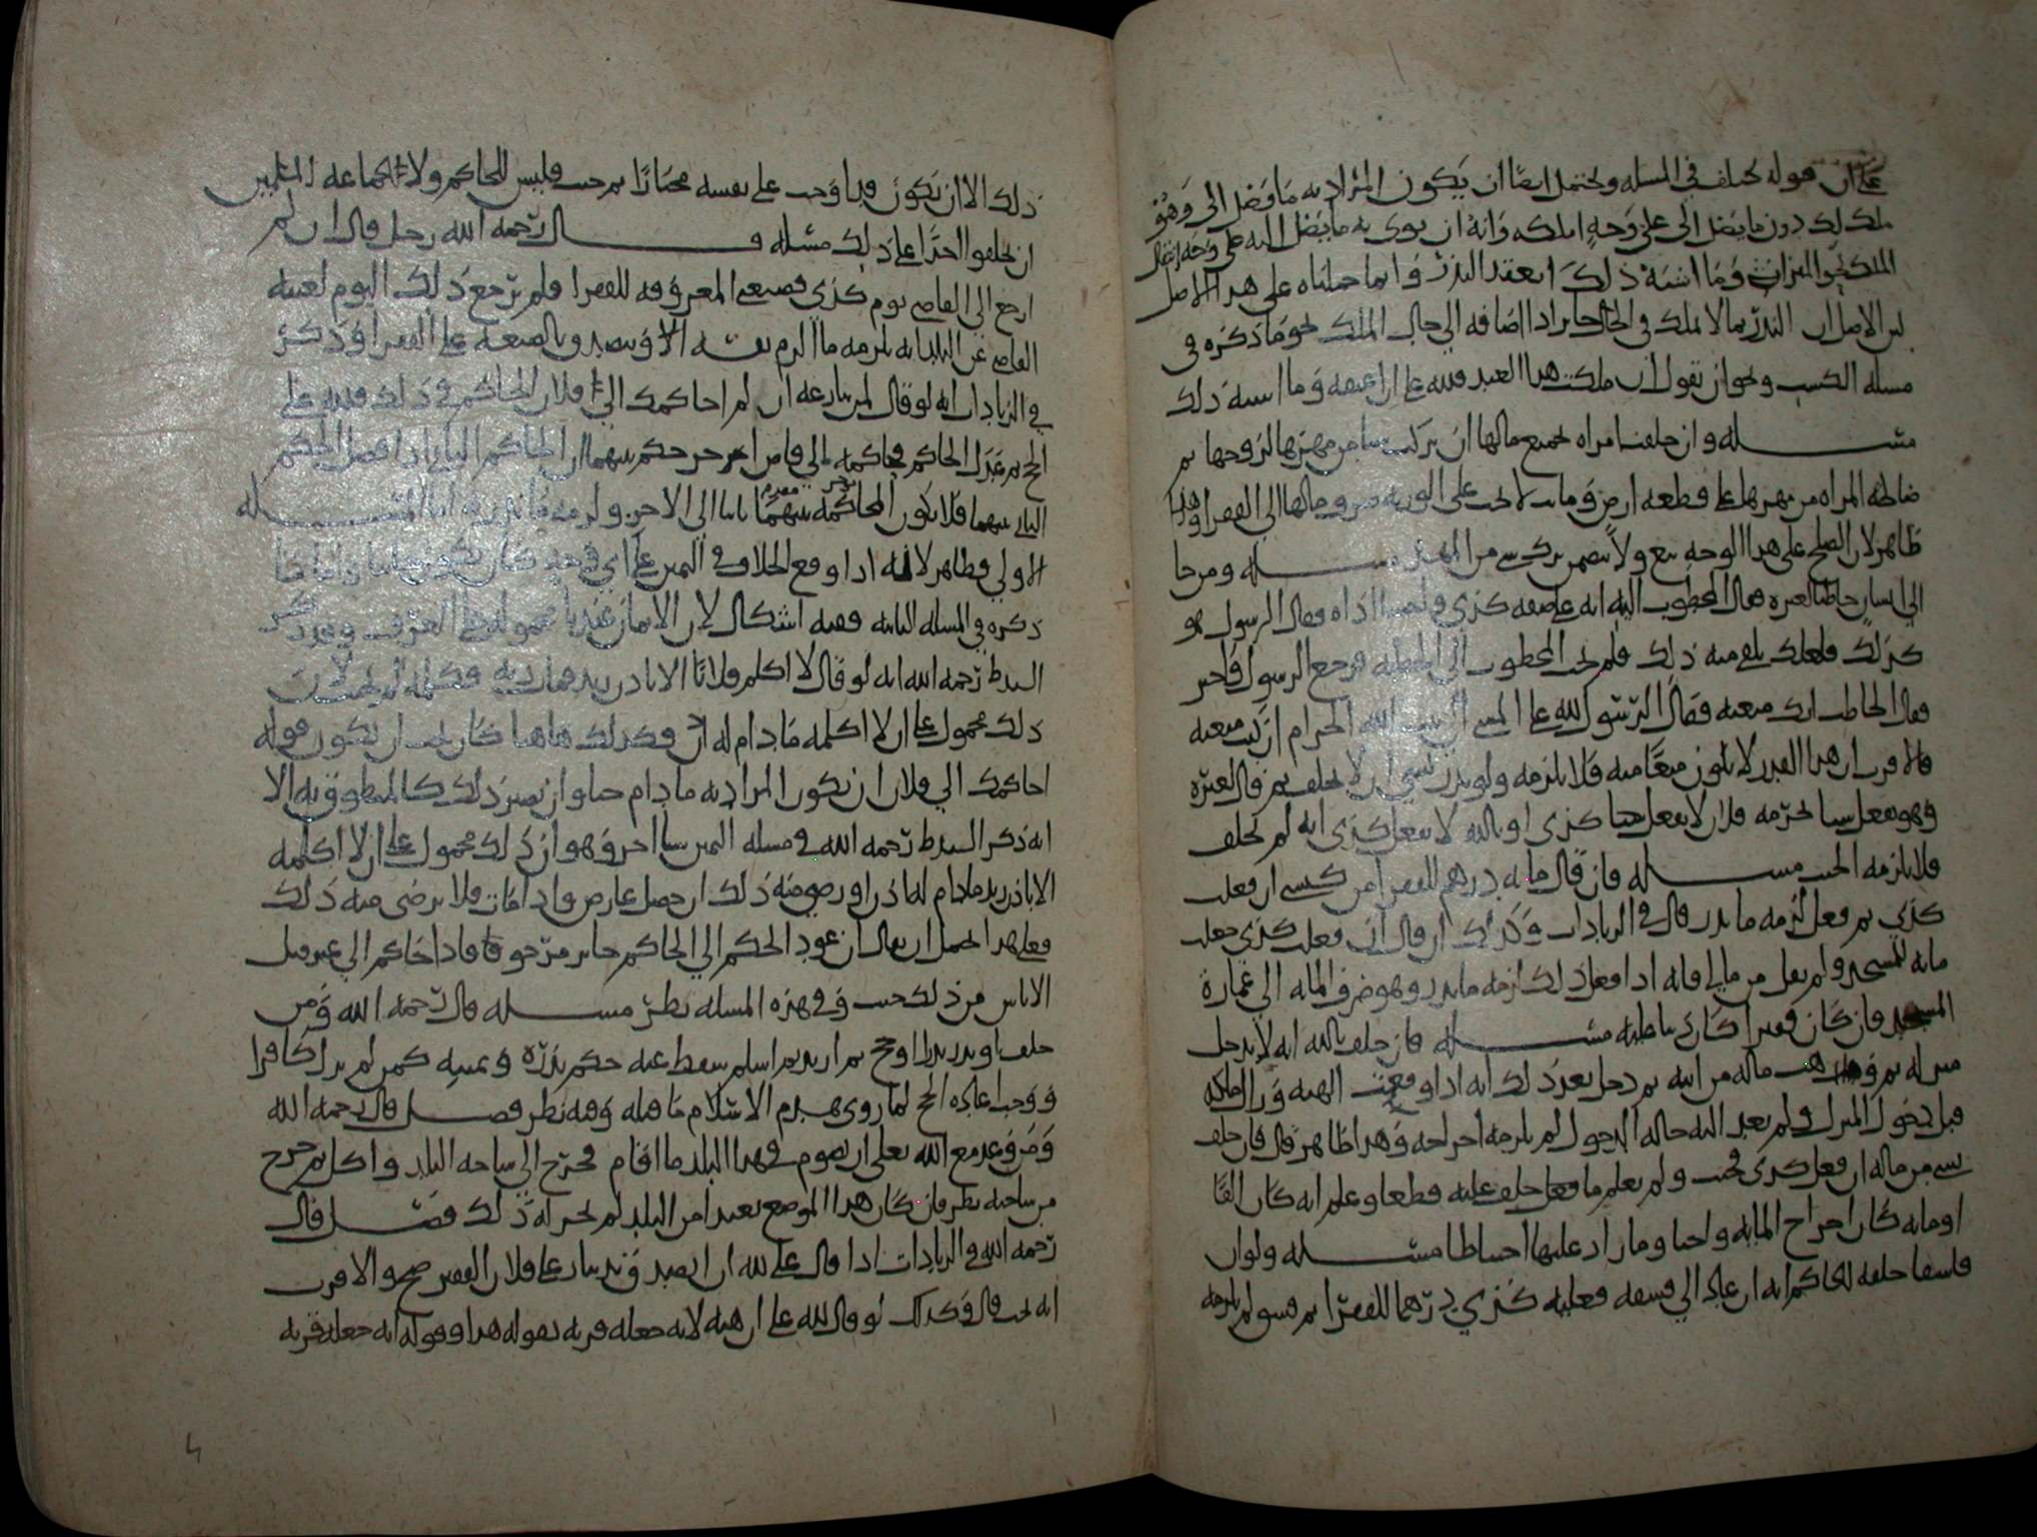 على ان قوله يختلف في المسله ويحتمل ايضا ان يكون المراد به ما وصل الى وهو
ملك لك دون ما يصل الى على وجه املكه وانه ان نوى به ما يصل اليه على وجه انتقال
الملك نحو الميراث وما اشبه ذلك انعقد النذر وانما حملناه على هذا الاصل
لان الاصل ان النذر بما لا يملك في الحال جايز اذا اضافه الى حال الملك نحو ما ذكره في
مسله الكسب ونحو ان تقول ان ملكت هذا العبد فلله على ان اعتقه وما اشبه ذلك
مسله وان حلفت امراه بجميع مالها ان تركت شيا من مهرها لزوجها ثم
صالحه المراه من مهرها على قطعه ارض وماتت لا يجب على الورثه صرف مالها الى الفقرا وهذا
ظاهر لان الصلح على هذا الوجه بيع ولا يتضمن ترك شي من المهر مسله ومن جا
الى انسان خاطبا لغيره فقال المخطوب اليه انه على صفه كذى فقال الرسول هو
كذلك فلعلك تلقى منه ذلك فلم يجب المخطوب الى الخطبه فرجع الرسول فاخبر
فقال الخاطب انك منعته فقال الرسول لله على المسي الى بيت الله الحرام ان كنت منعته
فالاقرب ان هذا القدر لا يكون منعا منه فلا يلزمه ولو نذر بشي ان لا يحلف ثم قال لغيره
وهو يفعل شيا بحرمه فلان لا تفعل هذا كذى او بالله لا تفعل كذى انه لم يحلف
فلا يلزمه الحنث مسله فان قال مايه درهم للفقرا من كيسي ان فعلت
كذى ثم فعل لزمه ما نذر قال في الزيادات وكذلك ان قال ان فعلت كذى جعلت
مايه للمسجد ولم يقل من مالي فانه اذا فعل ذلك لزمه ما نذر وهو صرف المايه الى عماره
المسجد فان كان فقيرا كان ساطيه مسله فان حلف بالله انه لا يدخل
منزله ثم وهب ماله من ابنه ثم دخل بعد ذلك انه اذا وقعت الهبه وزال ملكه
قبل دخول المنزل ولم يعد اليه حاله الدخول لم يلزمه اخراجه وهذا ظاهر قال فان حلف
بشي من ماله ان فعل كذى فحنث ولم يعلم ما فعل حلف عليه قطعا وعلم انه كان الفا
او مايه كان اخراج المايه واجبا وما زاد عليها احتياطا مسله ولو ان
فاسقا حلفه الحاكم انه ان عاد الى فسقه فعليه كذي درهما للفقرا ثم فسق لم يلزمه
ذلك الا ان يكون قد اوجب على نفسه مختارا ثم حنث فليس للحاكم ولا لجماعه المسلمين
ان يحلفوا احدا على ذلك مسله قال رحمه الله رجل قال ان لم
ارجع الى القاضي يوم كذي فضيعتي المعروفه للفقرا فلم يرجع ذلك اليوم لغيبه
القاضي عن البلد انه يلزمه ما الزم نفسه الا ويتصدق بالضيعه على الفقرا وذكر
في الزيادات انه لو قال لمن نازعه ان لم احاكمك الى فلان الحاكم في ذلك فلله علي
الحج ثم عزل الحاكم فحاكمه الى قاض اخر حكم بينهما ان الحاكم الثاني اذا فصل الحكم
الثاني بينهما فلا تكون المحاكمه بينهما ثانيا الى الاخر ولزمه ما نذر به اما المسله
الاولى فظاهر لانه اذا وقع الخلاف في اليمين على اي وجه كان يكون حانثا واما ما
ذكره في المسله الثانيه ففيه اشكال لان الايمان عندنا محموله على العرف وقد ذكر
السيد ط رحمه الله انه لو قال لا اكلم فلانا الا باذن زيد فمات زيد فكلمه انه لا يحنث لان
ذلك محمول على ان لا اكلمه ما دام له اذن فكذلك هاهنا كان يجب ان يكون قوله
احاكمك الى فلان ان يكون المراد به ما دام حيا وان يصير ذلك كالمنطوق به الا
انه ذكر السيد ط رحمه الله في مسله اليمين شيا اخر وهو ان ذلك محمول على ان لا اكلمه
الا باذن زيد ما دام له اذن او رضي منه ذلك ان حصل عارض واذا مات فلا يرضى منه ذلك
فعلى هذا احتمل ان يقال ان عود الحكم الى الحاكم جايز مرجو فاذا حاكم الى غيره قبل
الاياس من ذلك حنث وفي هذه المسله نظر مسله قال رحمه الله ومن
حلف او نذر نذرا او حج ثم ارتد ثم اسلم سقط عنه حكم نذره ويمينه كمن لم يزل كافرا
ووجب اعاده الحج لما روي يهدم الاسلام ما قبله وفيه نظر فصل قال رحمه الله
ومن وعد مع الله تعلى ان يصوم في هذا البلد ما اقام فخرج الى ساحه البلد واكل ثم خرج
من ساحته نظر فان كان هذا الموضع بعيدا من البلد لم يجز له ذلك فصل قال
رحمه الله في الزيادات اذا قال على لله ان اتصدق بدينار على فلان الفقير صح والاقرب
انه يجب قال وكذلك لو قال لله على ان اهبه لانه جعله قربه بقوله هذا وقوله انه جعله قربه